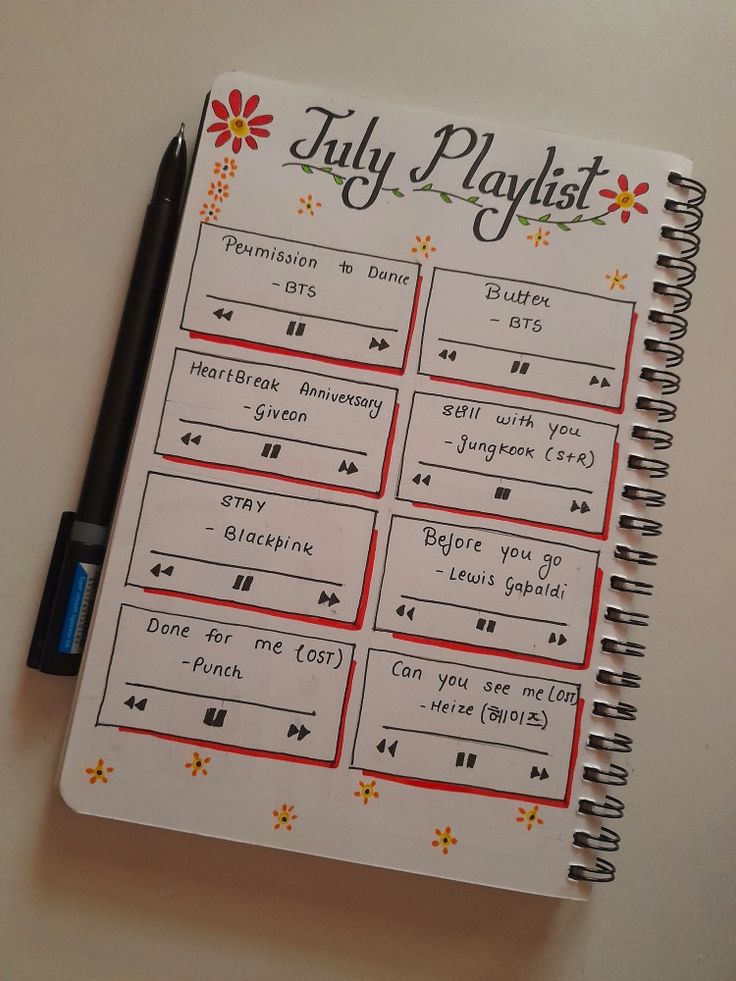 July Playlist
Permission to Dance
- BTS
Butter
- BTS
HeartBreak Anniversary
- Giveon
Still with you
- Jungkook (S+R)
STAY
- Blackpink
Before you go
- Lewis Gapaldi
Done for me (OST)
- Punch
Can you see me (OST)
- Heize (헤이즈)